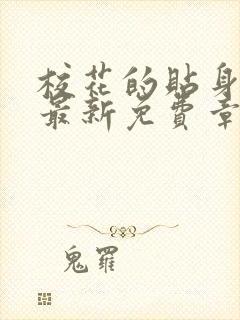 校花的贴身
最新免費章
鬼羅